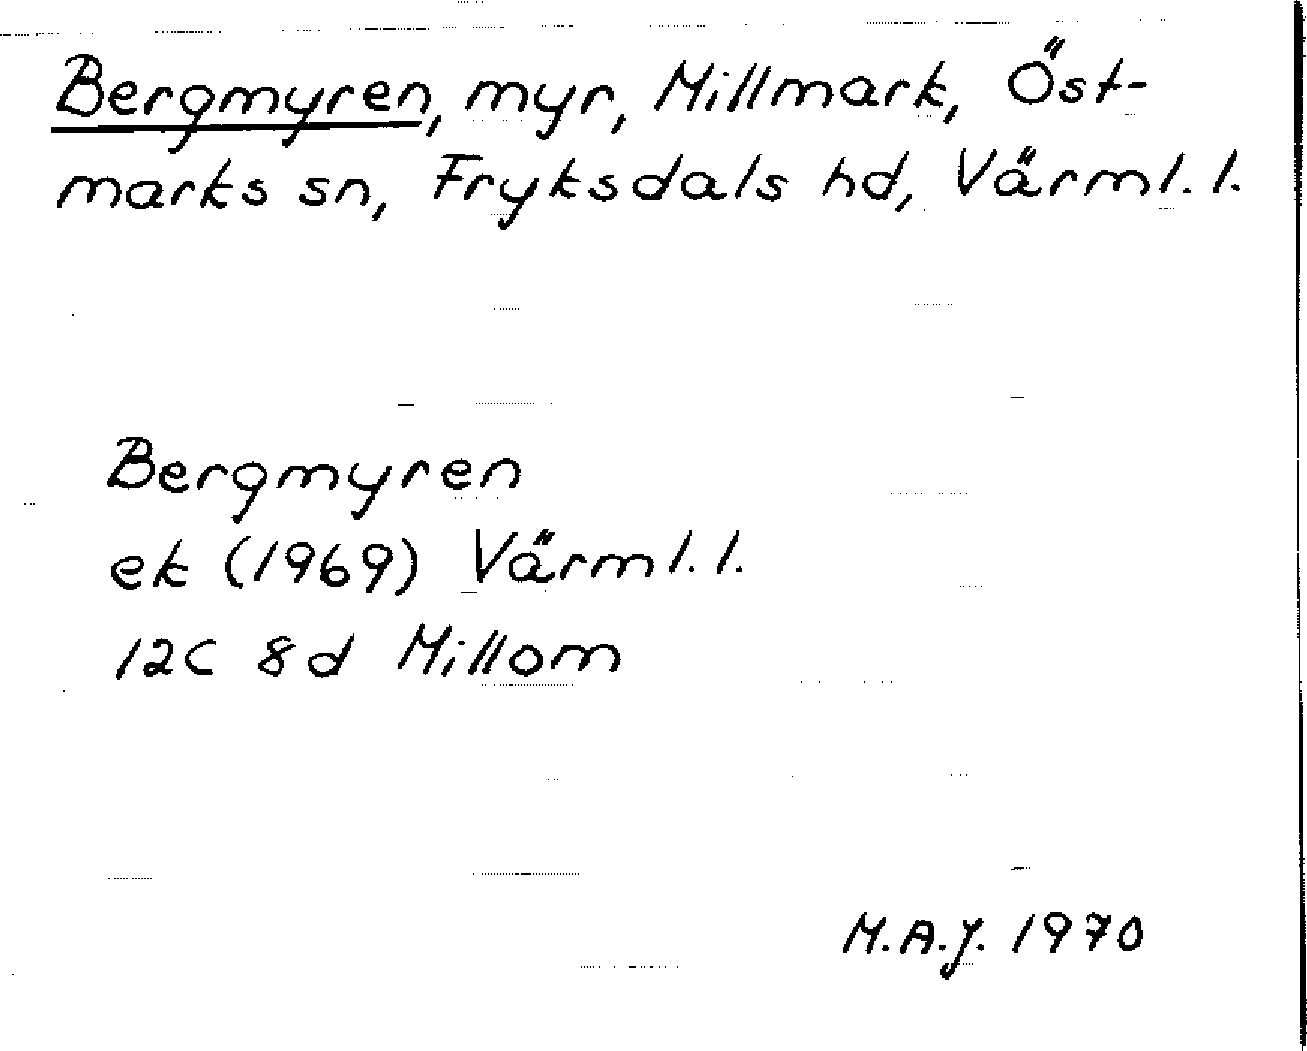 Bergmyren, myr, Millmark, Öst-
marks sn, Fryksdals hd, Värml. l.
Bergmyren
ek (1969) Värml. l.
12C 8d Millom
M.A.J. 1970